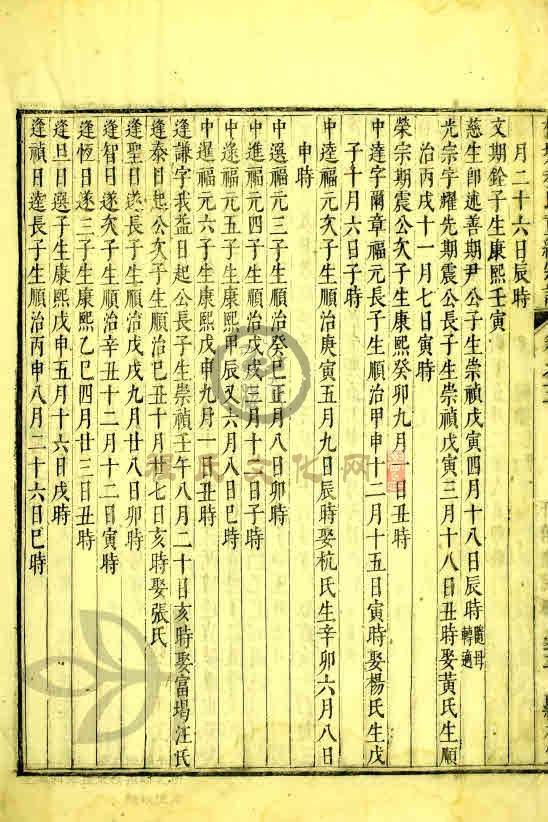 月二十六日辰時
文期銓子生康熙壬寅
慈生卽述善期尹公子生崇禎戊寅四月十八日辰時隨母轉適
光宗字耀先期震公長子生崇禎戊寅三月十八日丑時娶黃氏生順
治丙戌十一月七日寅時
榮宗期震公次子生康熙癸卯九月一日丑時
中達字爾章福元長子生順治甲申十二月十五日寅時娶楊氏生戊
子十月六日子時
中逵福元次子生順治庚寅五月九日辰時娶杭氏生辛卯六月八日
申時
中選福元三子生順治癸巳正月八日卯時
中進福元四子生順治戊戌三月十二日子時
中逺福元五子生康熙甲辰又六月八日巳時
中暹福元六子生康熙戊申九月一日丑時
逢謙字我益日起公長子生崇禎壬午八月二十日亥時娶富堨汪氏
逢泰日起公次子生順治己丑十月廿七日亥時娶張氏
逢聖日遂長子生順治戊戌九月廿八日卯時
逢智日遂次子生順治辛丑十二月十二日寅時
逢恆日遂三子生康熙乙巳四月廿三日丑時
逢旦日選子生康熙戊申五月十六日戌時
逢禎日逵長子生順治丙申八月二十六日巳時
程氏文化网